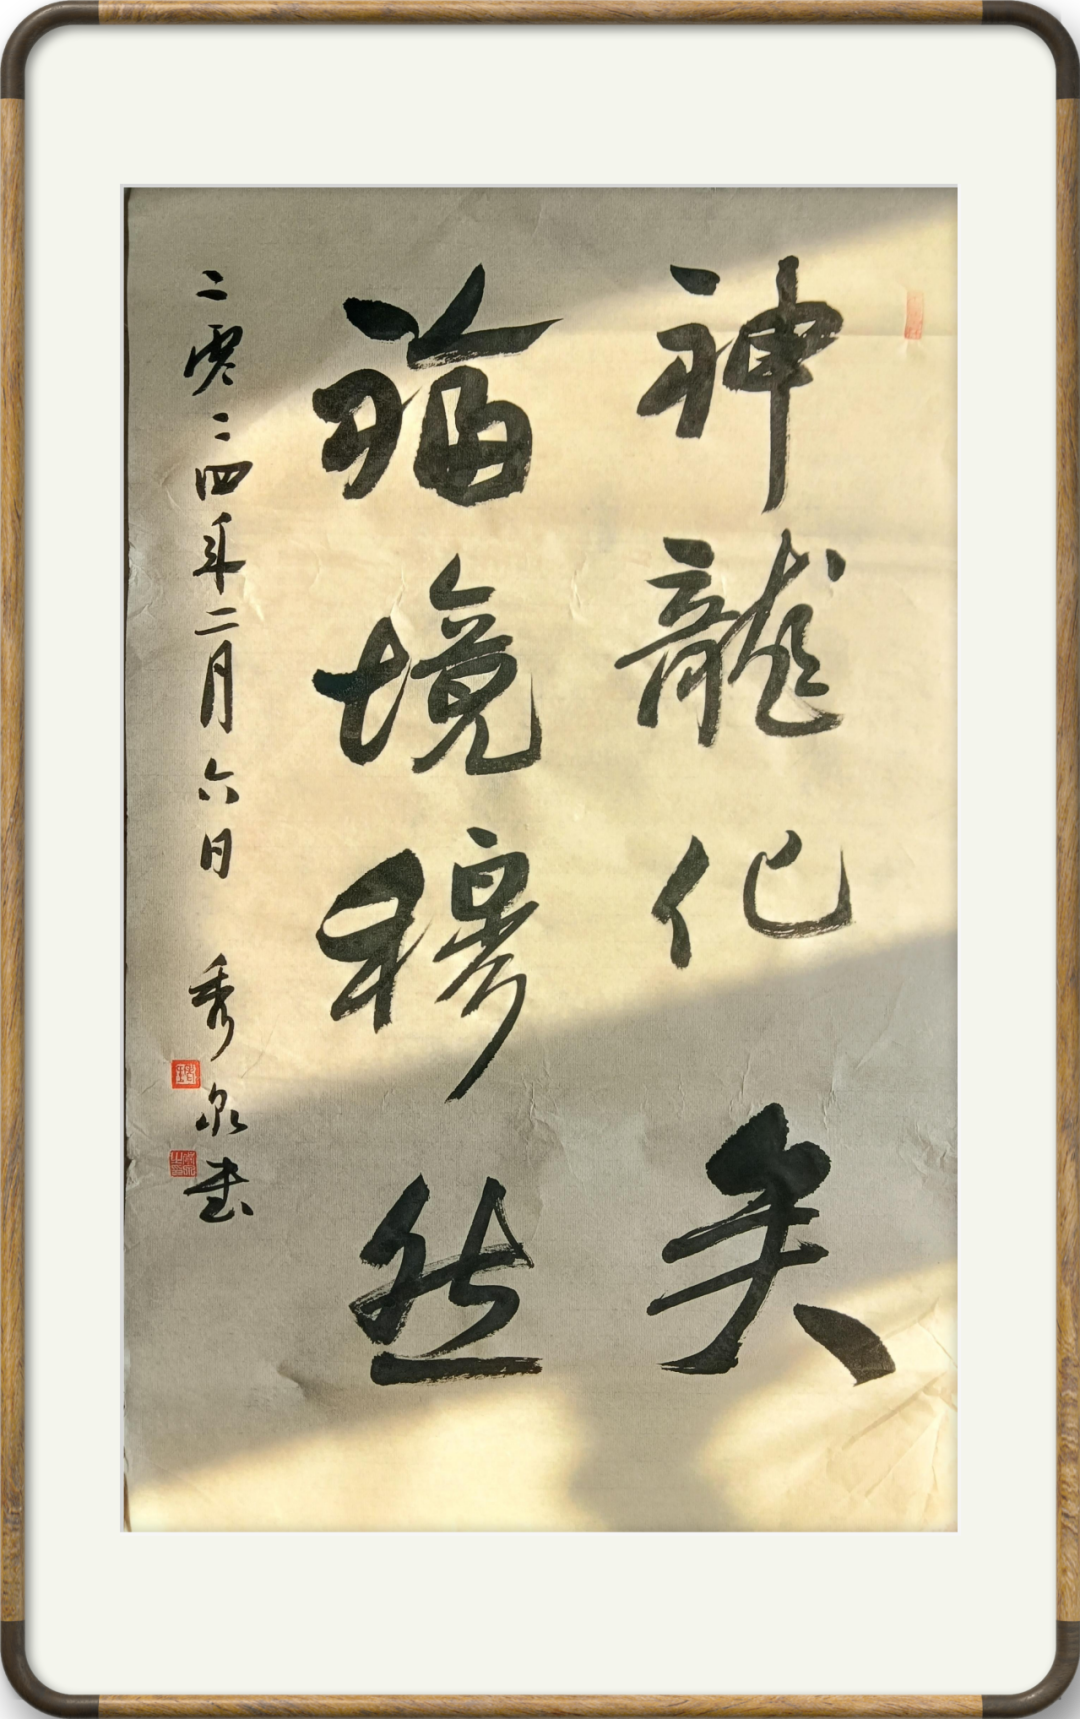 神龍化矣
境穆然
二零二四年二月六日 秀泉書